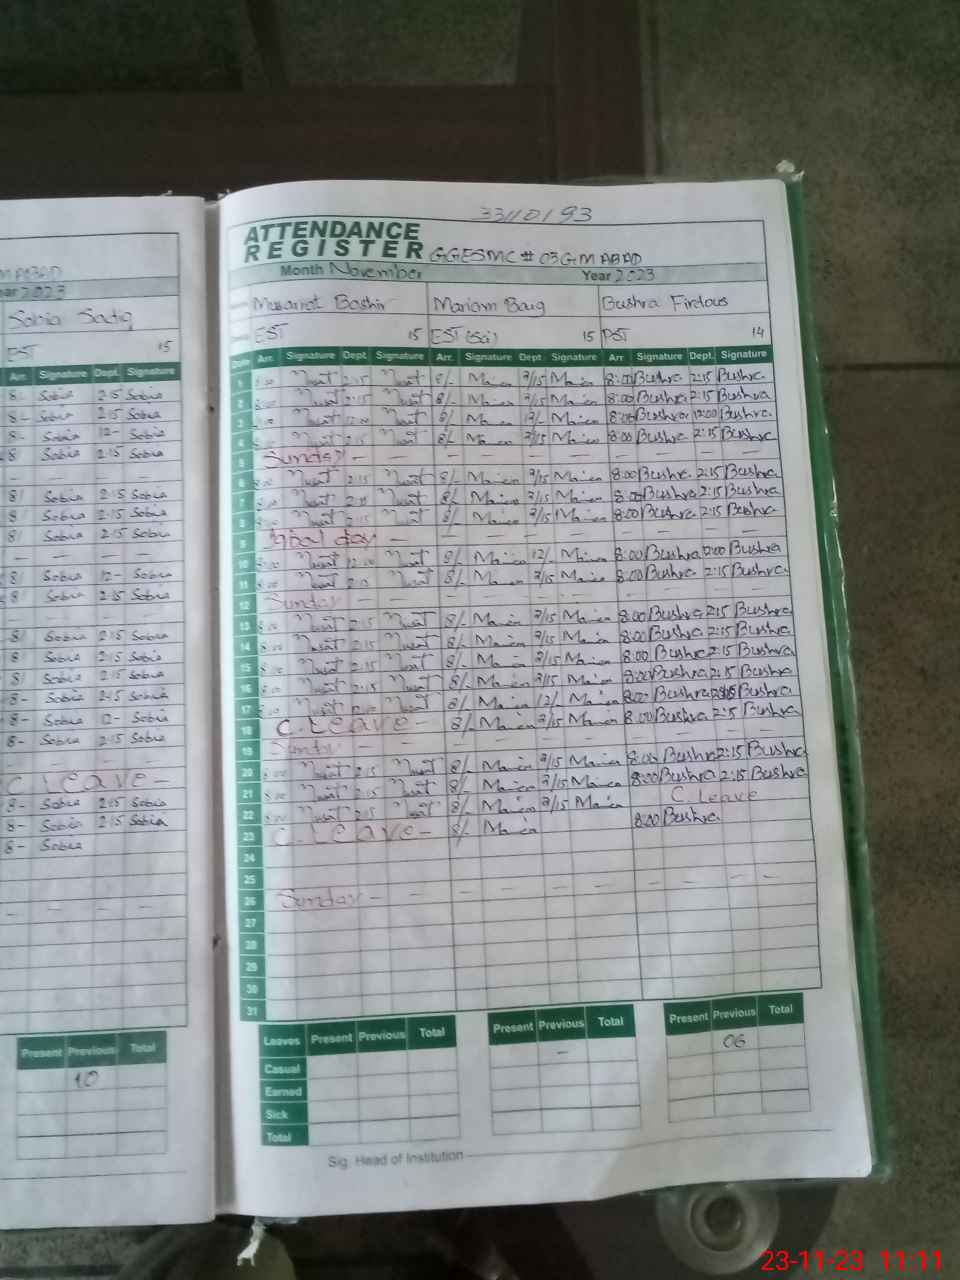 33110193
ATTENDANCE
REGISTER GGESMC # 03 GM ABAD
Month November Year 2023
Musarrat Bashir Mariam Baig Bushra Firdous
EST 15 EST (Sci) 15 PST 14
Date Arr. Signature Dept. Signature Arr. Signature Dept. Signature Arr. Signature Dept. Signature
1 8:00 2:15 8/- 2/15 8:00 Bushra 2:15 Bushra
2 8:00 2:15 8/- 2/15 8:00 Bushra 2:15 Bushra
3 8:00 12:00 8/- 12/- 8:00 Bushra 12:00 Bushra
4 8:00 2:15 8/- 2/15 8:00 Bushra 2:15 Bushra
5 Sunday - - - - - - - - - -
6 8:00 2:15 8/- 2/15 8:00 Bushra 2:15 Bushra
7 8:00 2:15 8/- 2/15 8:00 Bushra 2:15 Bushra
8 8:00 2:15 8/- 2/15 8:00 Bushra 2:15 Bushra
9 Iqbal day - - - - - - - - -
10 8:00 12:00 8/- 12/- 8:00 Bushra Bushra
11 8:00 2:15 8/- 2/15 8:00 Bushra 2:15 Bushra
12 Sunday - - - - - - - - - -
13 8:00 2:15 8/- 2/15 8:00 Bushra 2:15 Bushra
14 8:00 2:15 8/- 2/15 8:00 Bushra 2:15 Bushra
15 8:00 2:15 8/- 2/15 8:00 Bushra 2:15 Bushra
16 8:00 2:15 8/- 2/15 8:00 Bushra 2:15 Bushra
17 8:00 8/- 12/- 8:00 Bushra Bushra
18 C. Leave - 8/- 2/15 8:00 Bushra 2:15 Bushra
19 Sunday - - - - - - - - - -
20 8:00 2:15 8/- 2/15 8:00 Bushra 2:15 Bushra
21 8:00 2:15 8/- 2/15 8:00 Bushra 2:15 Bushra
22 8:00 2:15 8/- 2/15 C. Leave
23 C. Leave - 8/- 8:00 Bushra
24
25
26 Sunday - - - - - - - - - -
27
28
29
30
31
Leaves Present Previous Total Present Previous Total Present Previous Total
Casual - 06
Earned
Sick
Total
Sig. Head of Institution
M ABAD
ear 2023
Sobia Sadiq
EST 15
Arr. Signature Dept. Signature
8- Sobia 2:15 Sobia
8- Sobia 2:15 Sobia
8- Sobia 12- Sobia
8/ Sobia 2:15 Sobia
- - - -
8/ Sobia 2:15 Sobia
8/ Sobia 2:15 Sobia
8/ Sobia 2:15 Sobia
- - - -
8/ Sobia 12- Sobia
8/ Sobia 2:15 Sobia
- - - -
8/ Sobia 2:15 Sobia
8/ Sobia 2:15 Sobia
8/ Sobia 2:15 Sobia
8- Sobia 2:15 Sobia
8- Sobia Sobia
8- Sobia 2:15 Sobia
- - - -
C. Leave -
8- Sobia 2:15 Sobia
8- Sobia 2:15 Sobia
8- Sobia
- - - -
Present Previous Total
10
23-11-23 11:11